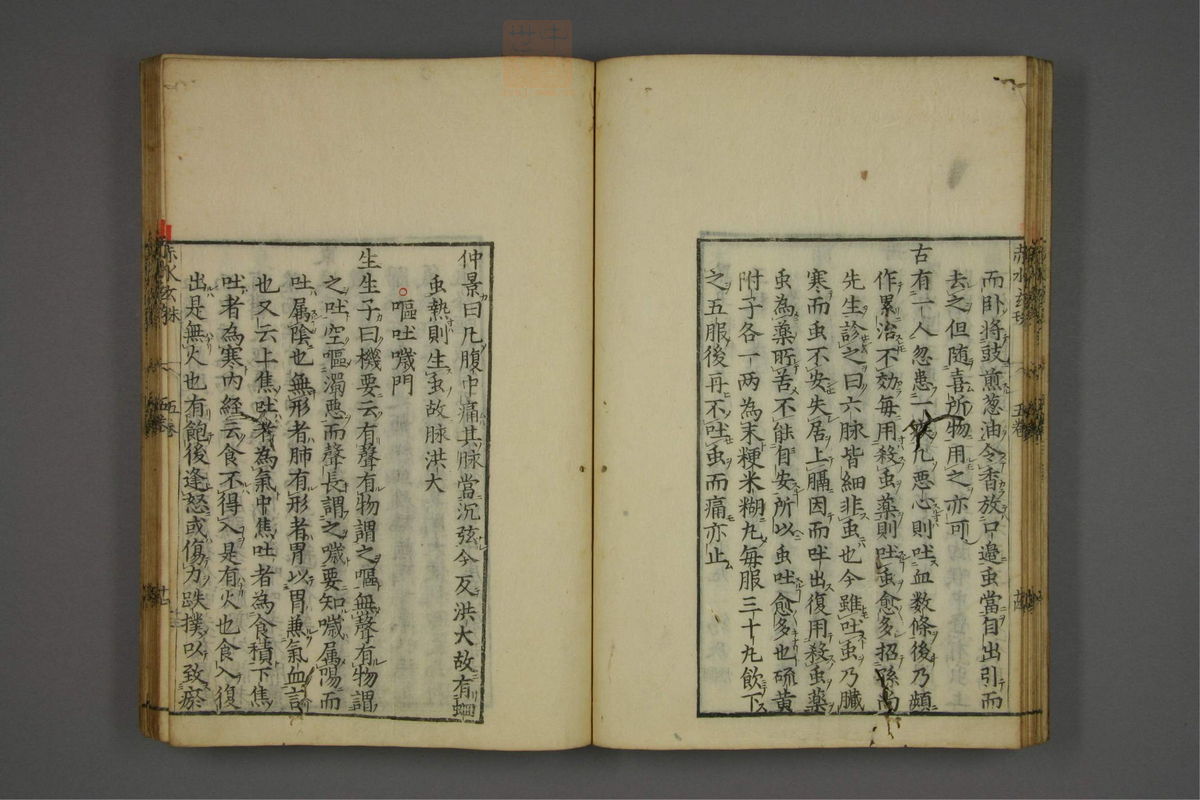 而卧将豉煎葱油令香放口邉虫當自出引而
去之但随喜所物用之亦可
古有一人忽患一
凡悪心則吐血数條後乃頻
作累治不効毎用殺虫薬則吐虫愈多招孫尚
先生診之曰六脉皆細非虫也今雖吐虫乃臓
寒而虫不安失居上膈因而吐出復用殺虫薬
虫為薬所苦不能自安所以虫吐愈多也硫黄
附子各一两為末粳米糊丸毎服三十丸飲下
之五服後再不吐虫而痛亦止
仲景曰凡腹中痛其脉當沉弦今反洪大故有蛔
虫熱則生虫故脉洪大
嘔吐噦門
生生子曰機要云有聲有物謂之嘔無聲有物謂
之吐空嘔濁悪而聲長謂之噦要知噦属陽而
吐属陰也無形者肺有形者胃以胃兼氣血説
也又云上焦吐者為氣中焦吐者為食積下焦
吐者為寒内経云食不得入是有火也食入復
出是無火也有飽後逢怒或傷力跌撲以致瘀
赤水玄珠
五巻